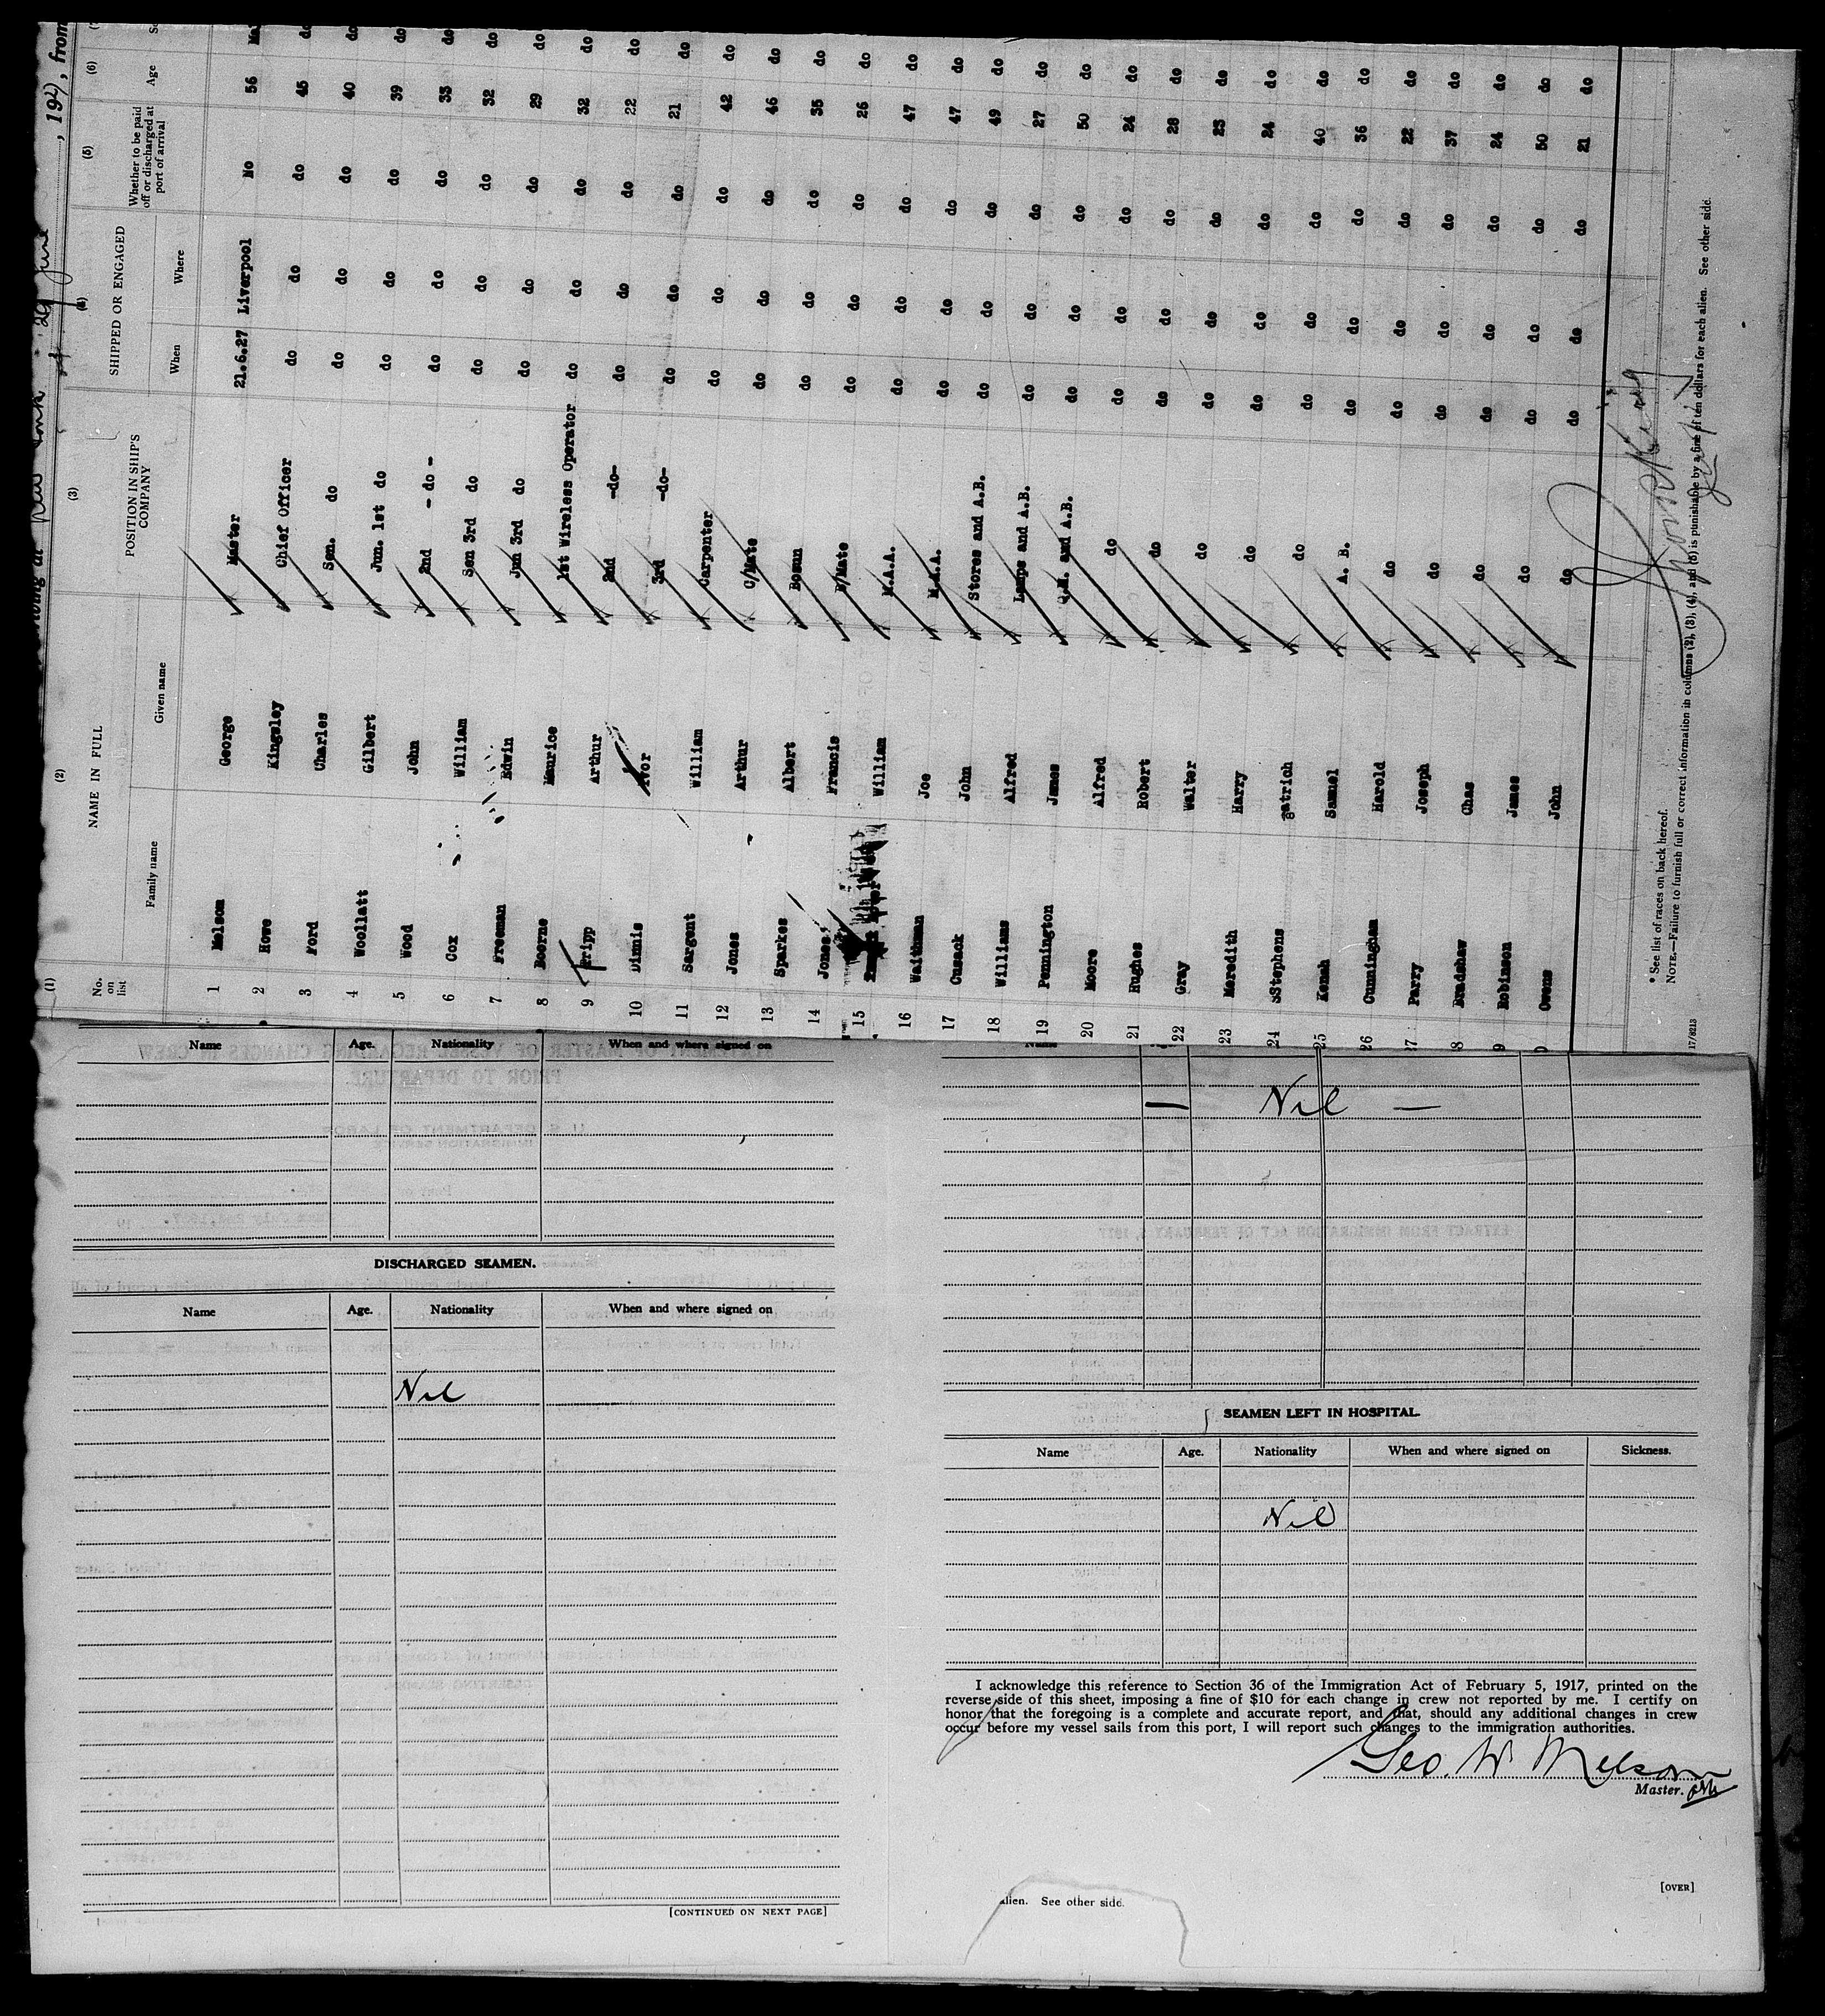 , 192), from
29 June
(1) (2) (3) (4) (5) (6)
No. on list NAME IN FULL POSITION IN SHIP'S COMPANY SHIPPED OR ENGAGED Whether to be paid off or discharged at port of arrival Age
Family name Given name When Where
1 Melsom George Master 21.6.27 Liverpool No 56 Ma
2 Howe Kingsley Chief Officer do do do 45 do
3 Ford Charles Sen. do do do do 40 do
4 Woollatt Gilbert Jun. 1st do do do do 39 do
5 Wood John 2nd - do - do do do 33 do
6 Cox William Sen 3rd do do do do 32 do
7 Freeman Edwin Jun 3rd do do do do 29 do
8 Boerne Maurice 1st Wireless Operator do do do 32 do
9 Tripp Arthur 2nd -do- do do do 22 do
10 Dinnis Ivor 3rd -do- do do do 21 do
11 Sargent William Carpenter do do do 42 do
12 Jones Arthur C/Mate do do do 46 do
13 Sparkes Albert Bosun do do do 35 do
14 Jones Francis B/Mate do do do 26 do
15 William M.A.A. do do do 47 do
16 Waithman Joe M.A.A. do do do 47 do
17 Cusack John Stores and A.B. do do do 49 do
18 Williams Alfred Lamps and A.B. do do do 27 do
19 Pennington James Q.M. and A.B. do do do 50 do
20 Moore Alfred do do do do 24 do
21 Hughes Robert do do do do 28 do
22 Gray Walter do do do do 23 do
23 Meredith Harry do do do do 24 do
24 SStephens Patrich do do do do 40 do
25 Kenah Samuel A. B. do do do 36 do
26 Cunningham Harold do do do do 22 do
27 Parry Joseph do do do do 37 do
8 Bradshaw Chas do do do do 24 do
9 Robinson James do do do do 50 do
0 Owens John do do do do 21 do
* See list of races on back hereof.
NOTE.—Failure to furnish full or correct information in columns (2), (3), (4), and (6) is punishable by a fine of ten dollars for each alien. See other side.
17/8213
Name Age. Nationality When and where signed on
DISCHARGED SEAMEN.
Name Age. Nationality When and where signed on
Nil
[CONTINUED ON NEXT PAGE]
— Nil —
SEAMEN LEFT IN HOSPITAL.
Name Age. Nationality When and where signed on Sickness.
Nil
I acknowledge this reference to Section 36 of the Immigration Act of February 5, 1917, printed on the
reverse side of this sheet, imposing a fine of $10 for each change in crew not reported by me. I certify on
honor that the foregoing is a complete and accurate report, and that, should any additional changes in crew
occur before my vessel sails from this port, I will report such changes to the immigration authorities.
Geo. W Melsom
Master.
[OVER]
alien. See other side.